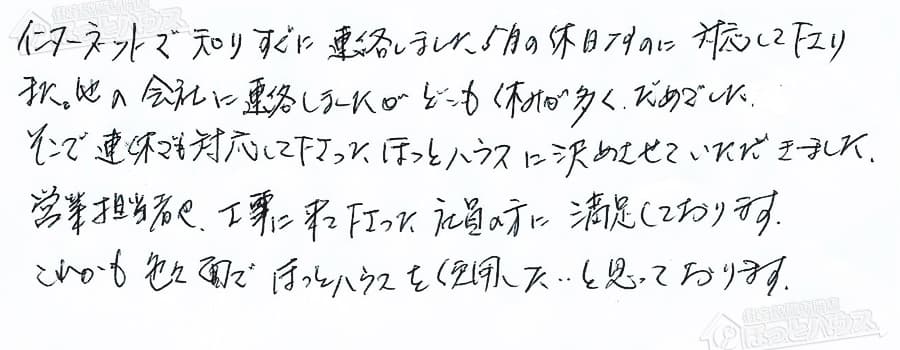 インターネットで知りすぐに連絡しました。5月の休日なのに対応して下さり
また。他の会社に連絡しましたがどこも休みが多く、だめでした。
そこで連休でも対応して下さったほっとハウスに決めさせていただきました。
営業担当者や、工事に来て下さった社員の方に満足しております。
これからも色々面でほっとハウスを使用した‥と思っております。
住宅設備専門店
ほっとハウス